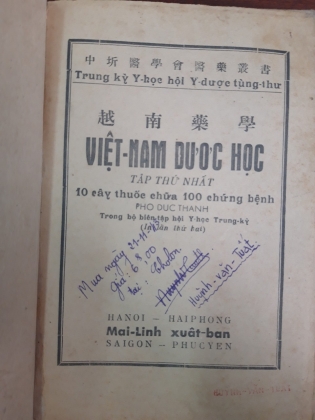 中圻醫學會醫藥叢書
Trung kỳ Y-học hội Y-dược tùng-thư
越南藥學
VIỆT-NAM DƯỢC HỌC
TẬP THỨ NHẤT
10 cây thuốc chữa 100 chứng bệnh
PHO DUC THANH
Trong bộ biên tập hội Y-học Trung-kỳ
(In lần thứ hai)
Mua ngày 21-11-
giá: 68,00
tại: Cholon
Huỳnh-văn-Tuất
HANOI – HAIPHONG
Mai-Linh xuất-bản
SAIGON – PHUCYEN